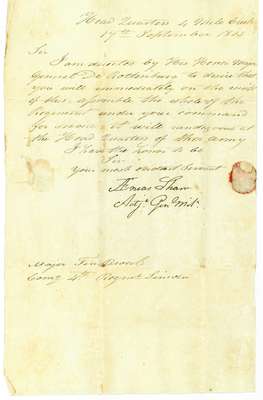 Head Quarters 4 Mile Creek
17th September 1813
Sir
I am directed by His Honor Major
General De Rottenburg to desire that
you will immediately on the receipt
of this, assemble the whole of the
Regiment under your command
for service & will rendezvous at
the Head Quarters of this Army
I have the honor to be
Sir
Your most obedient Servant
Æneas Shaw
Adjt. Genl Mil.
Major
Comg 4th Regmt Lincoln